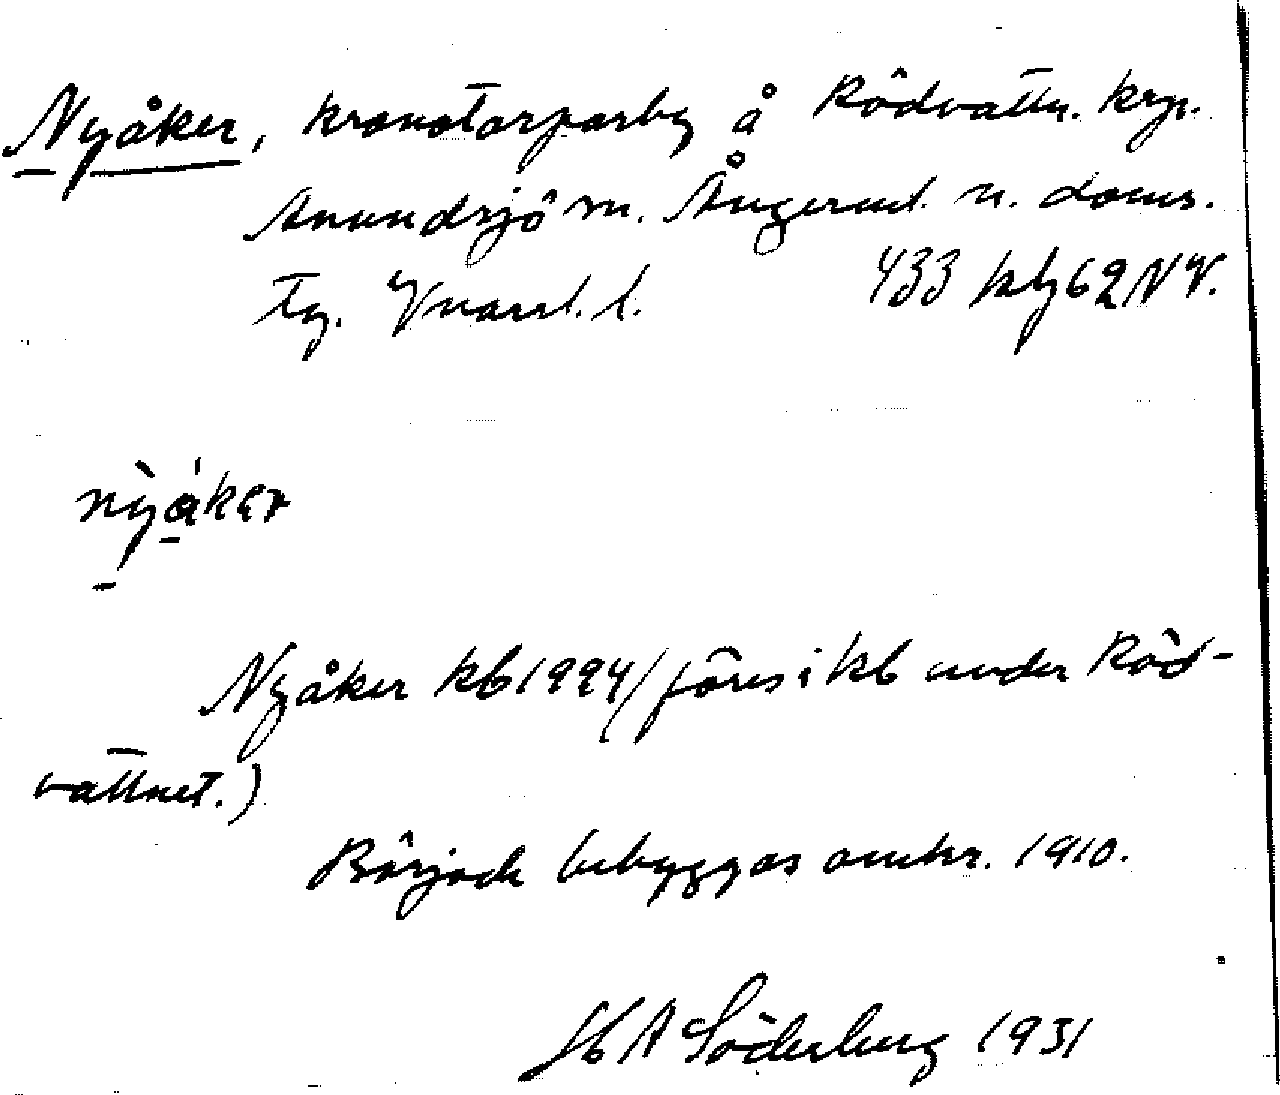 Nyåker, kronotorparby å Rödvattn. krp.
Anundsjö sn. Ångerml. n. doms.
tg. Vnorrl. l. 433 klg 62 NV.
nỳåker
Nyåker kb 1924 (föres i kb under Röd-
vattnet.)
Började bebyggas omkr. 1910.
H A Söderberg 1931